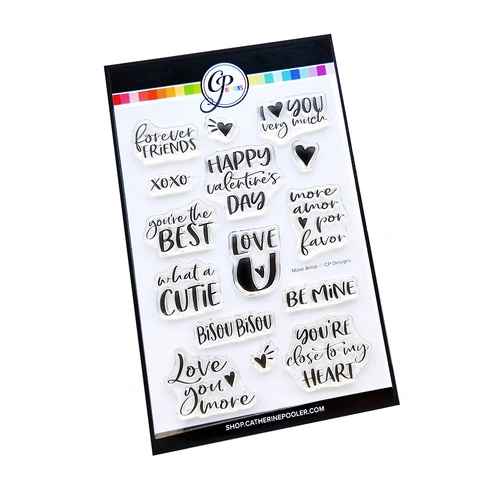 CP
DESIGNS
forever
FRIENDS
I ♥ YOU
very much
XOXO
HAPPY
valentine's
DAY
you're the
BEST
more
amor
por
favor
LOVE
U
More Amor © CP Designs
what a
CUTiE
BE MiNE
BiSOU BiSOU
YOU'RE
close to my
HEART
Love
you
more
SHOP.CATHERINEPOOLER.COM